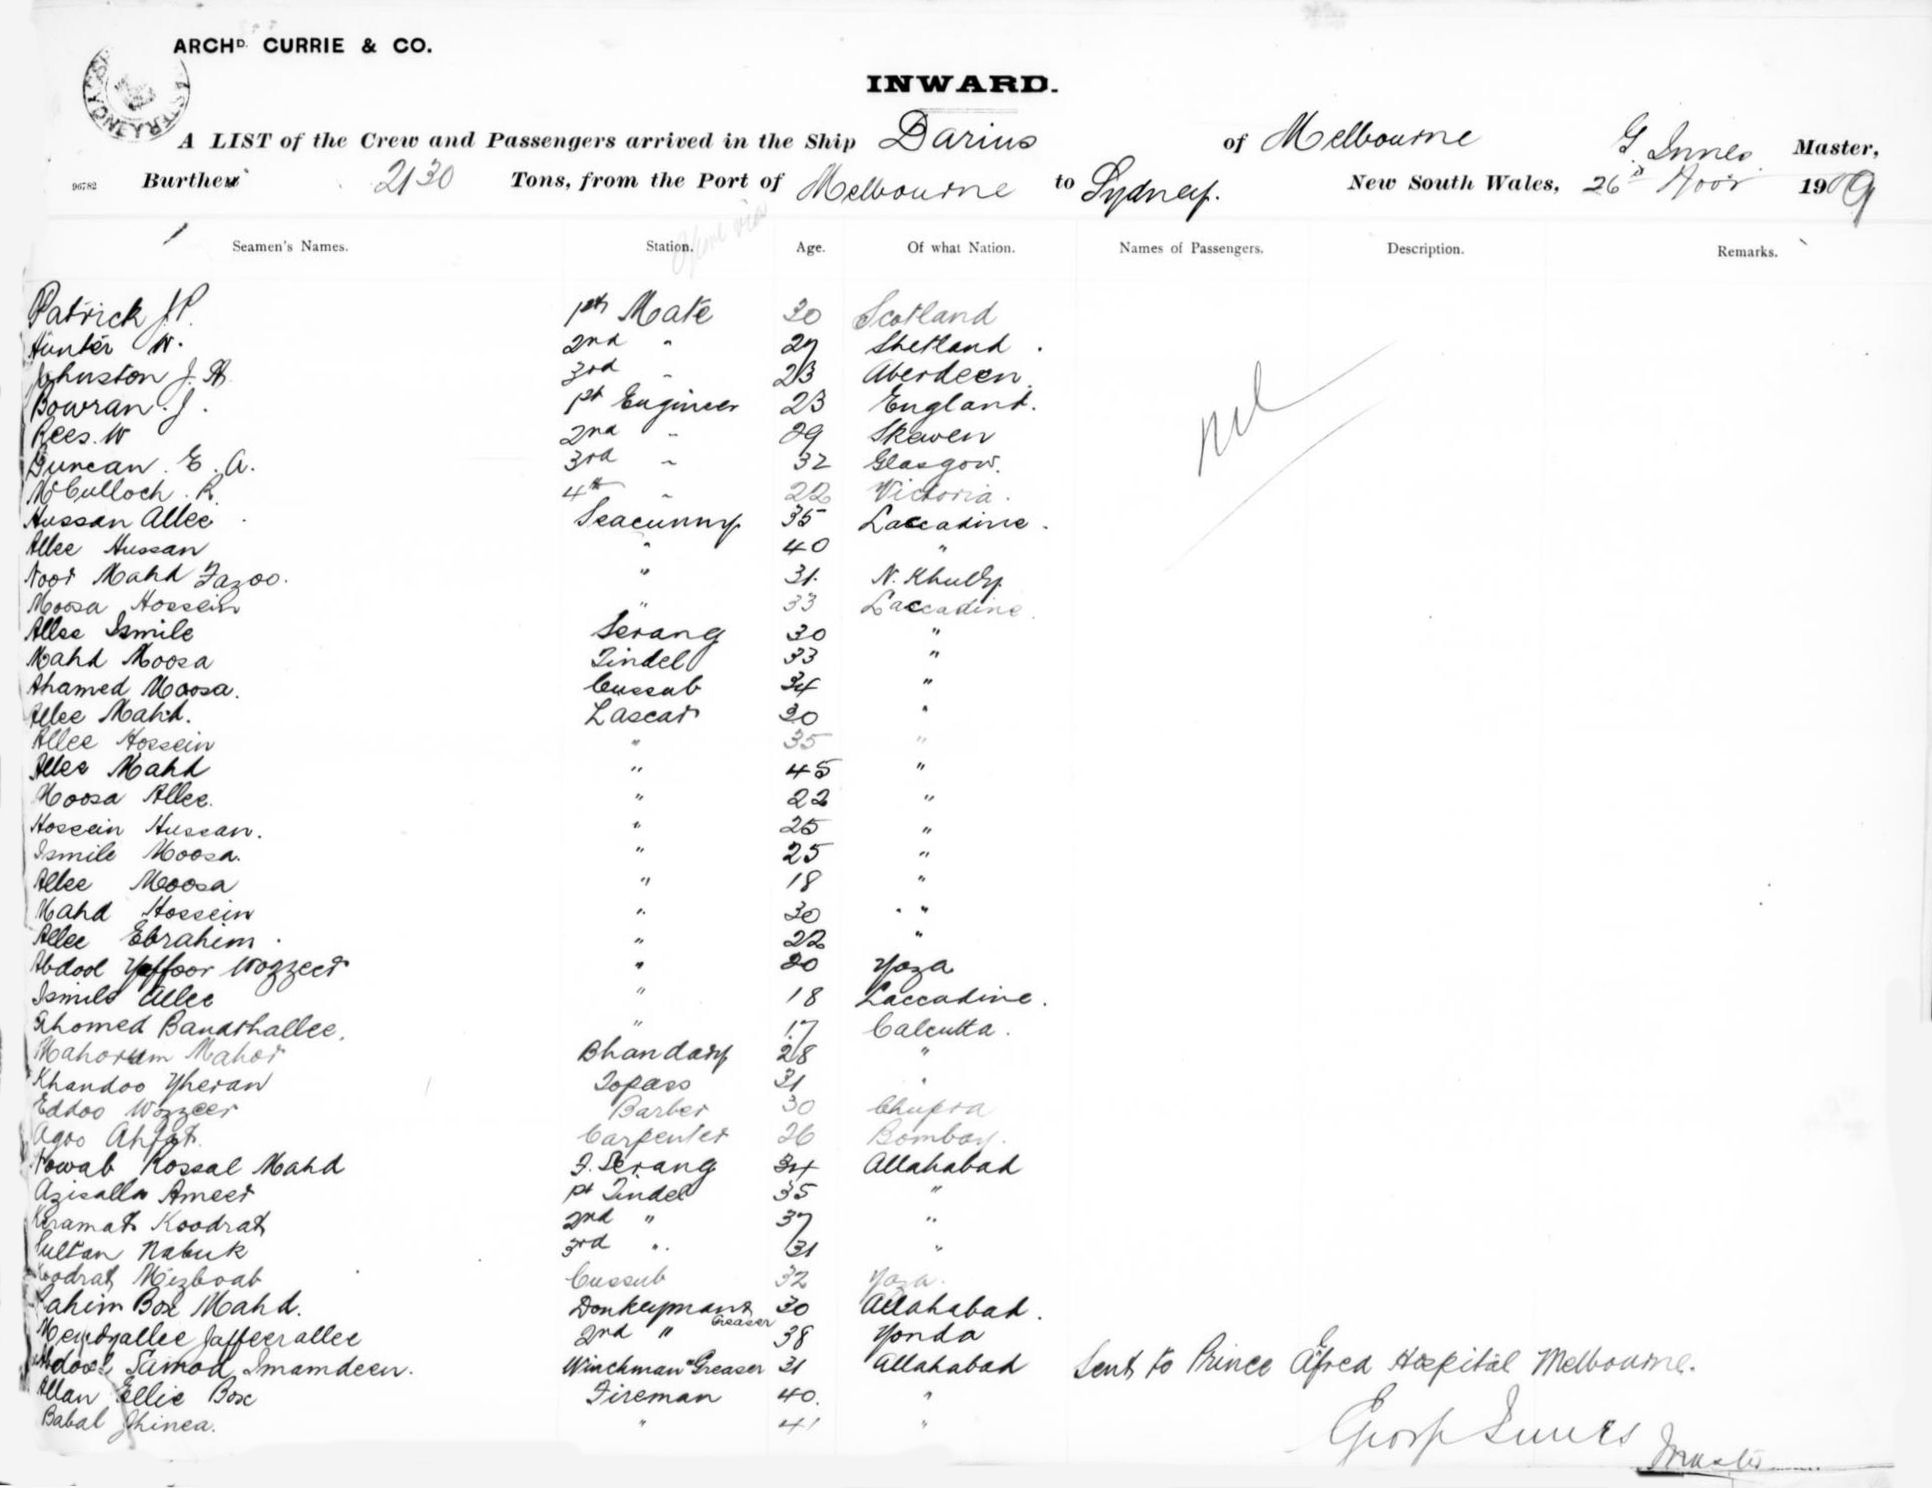 ARCHD. CURRIE & CO.
INWARD.
A LIST of the Crew and Passengers arrived in the Ship Darius of Melbourne G. Innes Master,
96782 Burthen 2130 Tons, from the Port of Melbourne to Sydney. New South Wales, 26 Novr 1909
Seamen's Names. Station. Age. Of what Nation. Names of Passengers. Description. Remarks.
Patrick J.P. 1st Mate 30 Scotland
Hunter W. 2nd " 27 Shetland .
Johnston J. H 3rd " 23 Aberdeen.
Bowran. J. 1st Engineer 23 England.
nil
Rees. W 2nd " 29 Skewen
Duncan. E. A. 3rd " 32 Glasgow.
McCulloch. R. 4th " 22 Victoria.
Hussan Allee Seacunny 35 Laccadine.
Allee Hussan " 40 "
Noor Mahd Fazoo. " 31.
Moosa Hossein " 33 Laccadine.
Allee Ismile Serang 30 "
Mahd Moosa Tindel 33 "
Ahamed Moosa. Cussub 34 "
Allee Mahd. Lascar 30 "
Allee Hossein " 35 "
Allee Mahd " 45 "
Moosa Allee. " 22 "
Hossein Hussan. " 25 "
Ismile Moosa. " 25 "
Allee Moosa " 18 "
Mahd Hossein " 30 "
Allee Ebrahim. " 22 "
Abdool Yaffoor Wozzeer " 20 Yoza
Ismile Allee " 18 Laccadine.
Ahomed Bandhallee. " 17 Calcutta.
Mahorum Mahor Bhandary 28 "
Khandoo Yheran Topass 31 "
Eddoo Wozzeer Barber 30 Chupra
Agoo Carpenter 26 Bombay.
Nowab Rossal Mahd F. Serang 34 Allahabad
Azisalla Ameer 1st Tindel 35 "
Keramat Koodrat 2nd " 37 "
Sultan Nabuk 3rd " 31 "
Koodrat Mezboab Cussub 32 Yoza.
Rahim Box Mahd. Donkeyman & Greaser 30 Allahabad.
Jaffeerallee 2nd " 38 Yonda
Abdool Samod Imamdeen. Winchman & Greaser 31 Allahabad Sent to Prince Alfred Hospital Melbourne.
Allan Ellie Box Fireman 40. "
Babal Jhinea. " 41 "
George Innes Master